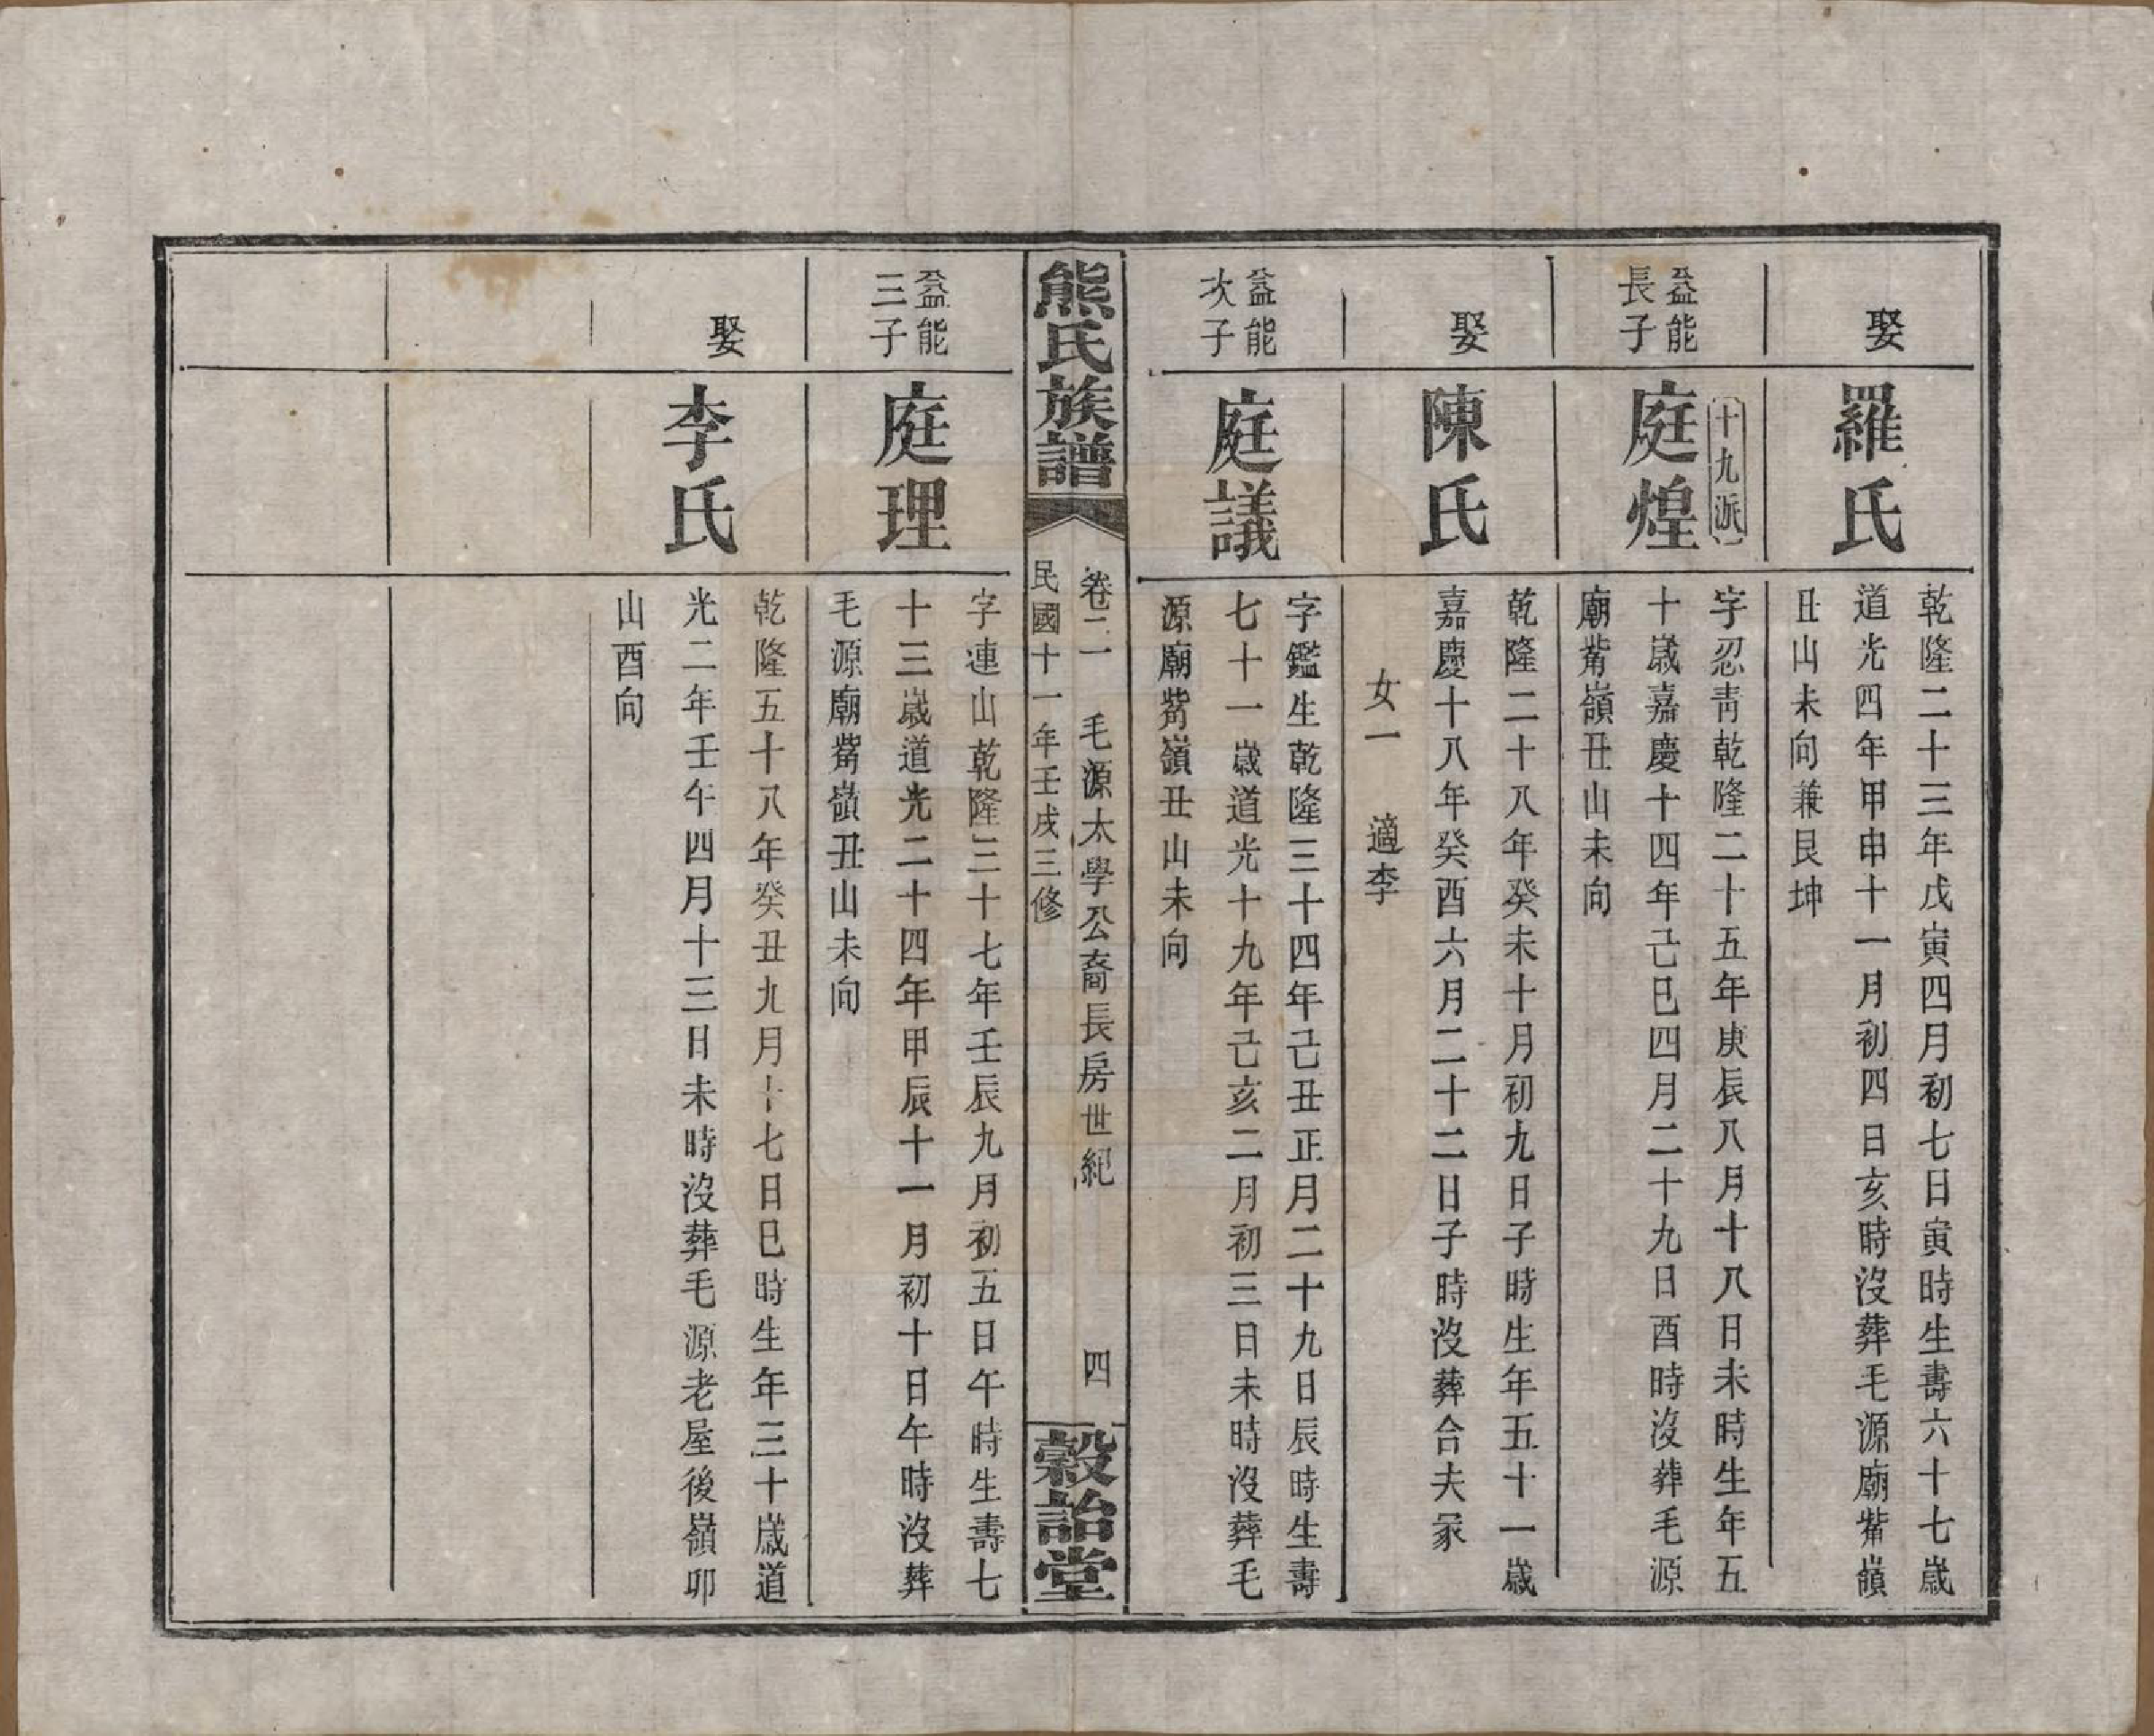 娶
羅氏
乾隆二十三年戊寅四月初七日寅時生壽六十七歲
道光四年甲申十一月初四日亥時沒葬毛源廟觜嶺
丑山未向兼艮坤
益能
長子
十九派
庭煌
字忍靑乾隆二十五年庚辰八月十八日未時生年五
十歲嘉慶十四年己巳四月二十九日酉時沒葬毛源
廟觜嶺丑山未向
娶
陳氏
乾隆二十八年癸未十月初九日子時生年五十一歲
嘉慶十八年癸酉六月二十二日子時沒葬合夫冢
女一 適李
益能
次子
庭議
字鑑生乾隆三十四年己丑正月二十九日辰時生壽
七十一歲道光十九年己亥二月初三日未時沒葬毛
源廟觜嶺丑山未向
熊氏族譜
卷二 毛源太學公裔長房世紀 四
民國十一年壬戌三修
穀詒堂
益能
三子
庭理
字連山乾隆三十七年壬辰九月初五日午時生壽七
十三歲道光二十四年甲辰十一月初十日午時沒葬
毛源廟觜嶺丑山未向
娶
李氏
乾隆五十八年癸丑九月十七日巳時生年三十歲道
光二年壬午四月十三日未時沒葬毛源老屋後嶺卯
山酉向